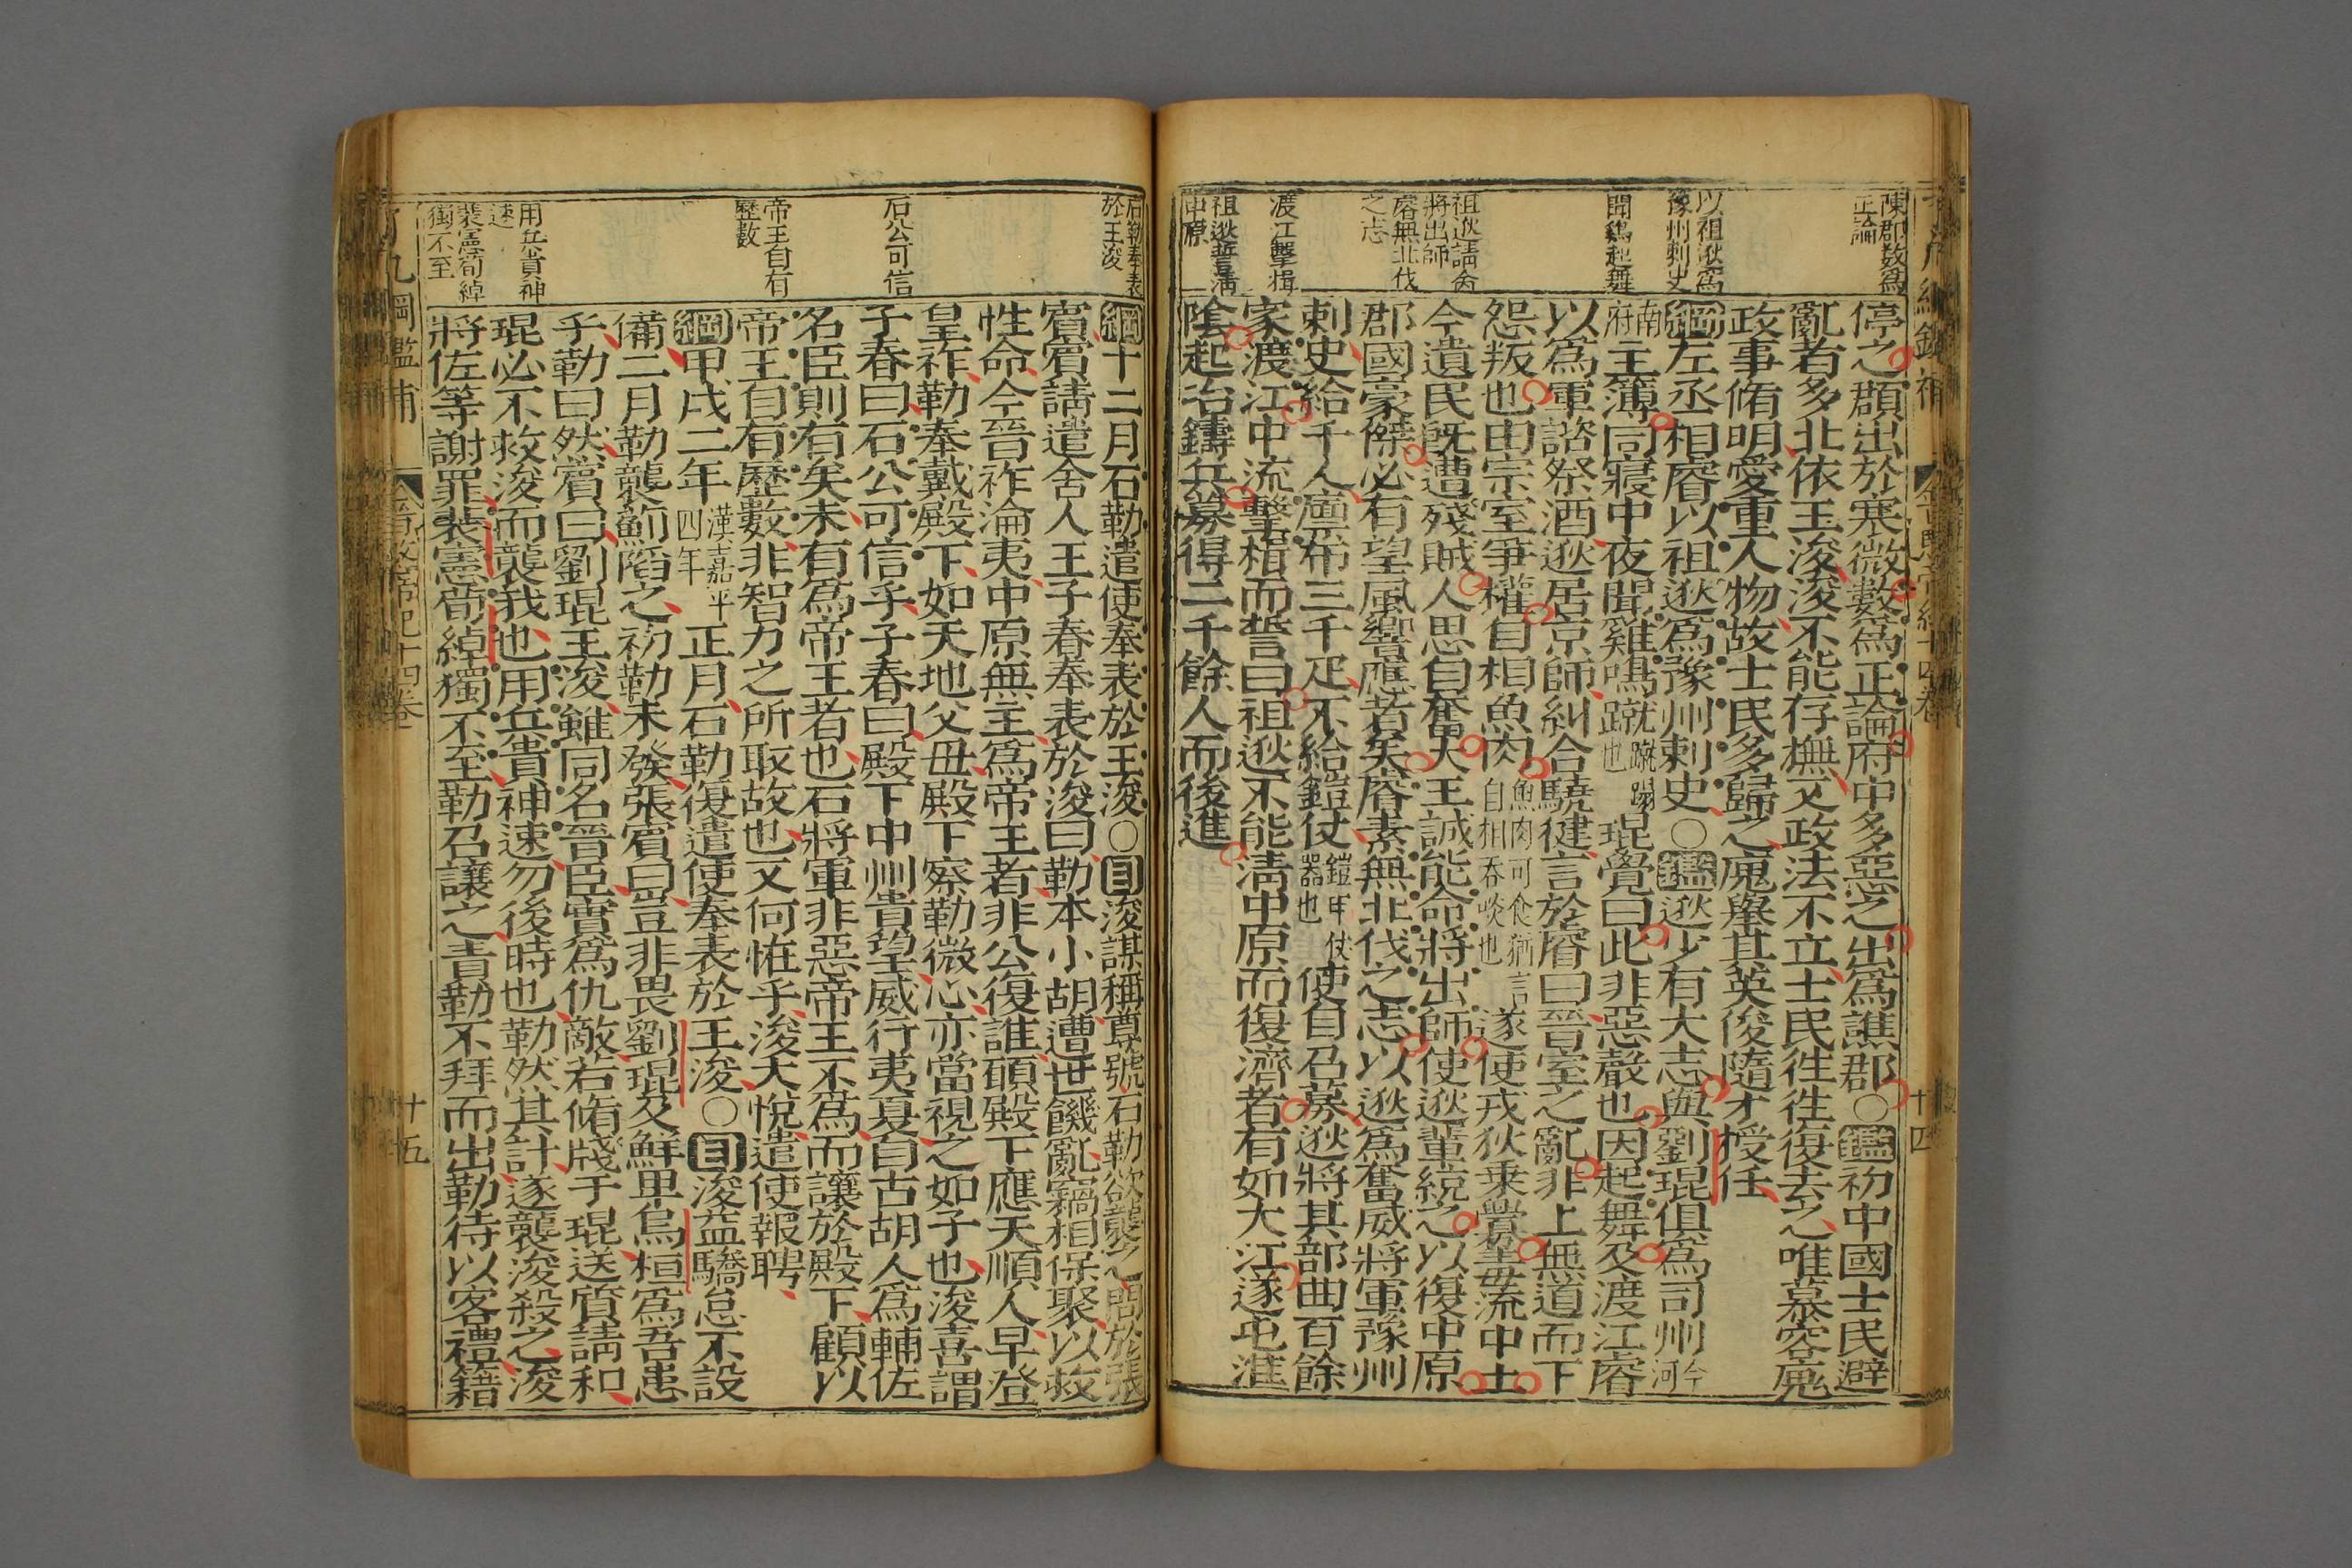 陳郡數爲
正論
以祖逖爲
豫州刺史
聞鷄起舞
祖逖請命
將出師
睿無北伐
之志
渡江擊楫
祖逖誓清
中原
停之頵出於寒微數爲正論府中多惡之出爲譙郡○鑑初中國士民避
亂者多北依王浚浚不能存撫又政法不立士民往往復去之唯慕容廆
政事脩明愛重人物故士民多歸之廆舉其英俊隨才授任
綱左丞相睿以祖逖爲豫州刺史○鑑逖少有大志與劉琨俱爲司州今河
南府主簿同寢中夜聞雞鳴蹴蹴蹋也琨覺曰此非惡聲也因起舞及渡江睿
以爲軍諮祭酒逖居京師糾合驍健言於睿曰晉室之亂非上無道而下
怨叛也由宗室爭權自相魚肉魚肉可食猶言自相吞啖也遂使戎狄乗釁毒流中土
今遺民既遭殘賊人思自奮大王誠能命將出師使逖輩統之以復中原
郡國豪傑必有望風響應者矣睿素無北伐之志以逖爲奮威將軍豫州
刺史給千人廪布三千疋不給鎧仗鎧甲仗器也使自召募逖將其部曲百餘
家渡江中流擊楫而誓曰祖逖不能淸中原而復濟者有如大江遂屯淮
陰起冶鑄兵募得二千餘人而後進
十四
石勒奉表
於王浚
石公可信
帝王自有
歷數
用兵貴神
速
裴憲荀綽
獨不至
綱十二月石勒遣使奉表於王浚○目浚謀稱尊號石勒欲襲之問於張
賓賓請遣舍人王子春奉表於浚曰勒本小胡遭世饑亂竊相保聚以救
性命今晉祚淪夷中原無主爲帝王者非公復誰頥殿下應天順人早登
皇祚勒奉戴殿下如天地父毋殿下察勒微心亦當視之如子也浚喜謂
子春曰石公可信乎子春曰殿下中州貴望威行夷夏自古胡人爲輔佐
名臣則有矣未有爲帝王者也石將軍非惡帝王不爲而讓於殿下顧以
帝王自有歷數非智力之所取故也又何怪乎浚大悅遣使報聘
綱甲戌二年漢嘉平四年正月石勒復遣使奉表於王浚○目浚益驕怠不設
備二月勒襲薊陷之初勒未發張賓曰豈非畏劉琨及鮮卑烏桓爲吾患
乎勒曰然賓曰劉琨王浚雖同名晉臣實爲仇敵若脩牋于琨送質請和
琨必不救浚而襲我也用兵貴神速勿後時也勒然其計遂襲浚殺之浚
將佐等謝罪裴憲荀綽獨不至勒召讓之責勒不拜而出勒待以客禮籍
了凡綱鑑補
十五